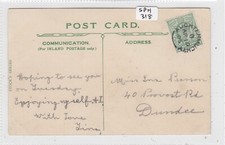 POST CARD.
SPM
318
COMMUNICATION
(For INLAND POSTAGE only.)
ADDRESS.
Hoping to see you
on Tuesday.
Enjoying myself A.I.
With Love
Tina.
Miss Ina Pearson
40 Provost Rd
Dundee